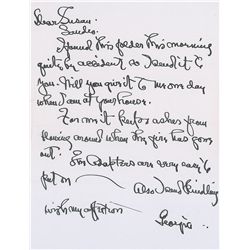 Dear Susan:
Sandro.
I found this folder this morning
quite by accident so I send it to
you. Will you give it to me one day
when I am at your house.
For me it keeps ashes from
around when the fire had gone
out:
adapters are very easy to
put on
Also I send Findlay
with my affection
Georgia